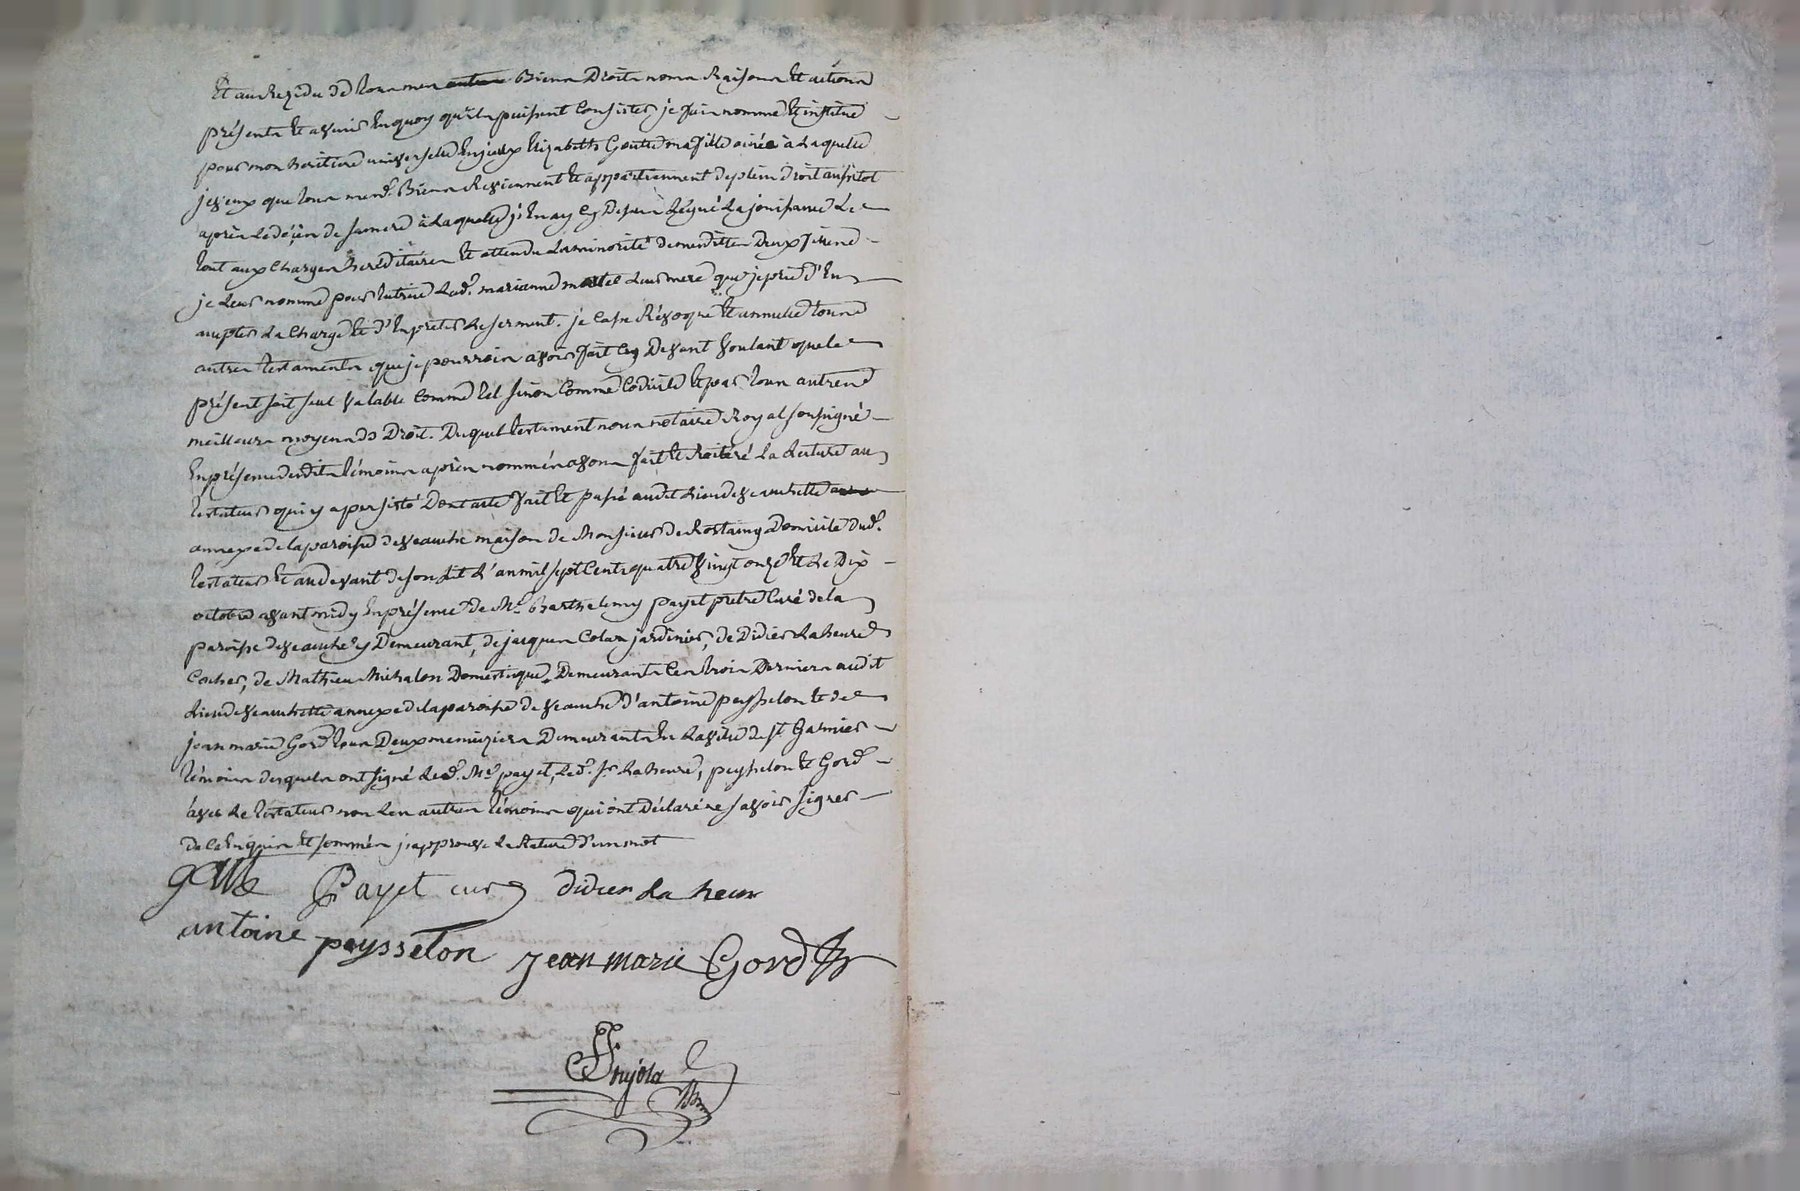 Et au Rezidu de tous mes autres Biens Droits noms Raisons Et actions
présents Et avenir En quoy qu'ils puissent Consister, je fais nomme Et institue
pour mon heritiere universelle Elizabeth Goutte ma fille ainée à laquelle
je veux que tous mesd. Biens Reviennent Et appartiennent de plein Droit aussitot
après le décès de sa mere à laquelle j'En ay Cy Dessus Légué La jouissance Le
tout aux Charges heréditaires Et attendu La minorité de mesdittes Deux
je leur nomme pour tutrice Lad. marianne leur mere que je prie d'En
accepter La Charge Et d'En preter Le serment. je Casse Révoque Et annulle tous
autres testaments que je pourrois avoir fait Cy Devant Voulant que le
présent soit seul Valable Comme tel sinon Comme Codicile Et par tous autres
meilleurs moyens de Droit. Duquel testament nous notaire Royal soussigné
En présence desdits témoins après nommés avons fait Et Réitéré La Lecture au
testateur qui y a persisté Dont acte fait Et passé audit Lieu de veauchette
annexe de la paroisse de veauche maison de Monsieur de Rostaing Domicile dud.
testateur Et au devant de son Lit L'an mil sept Cent quatre Vingt onze Et Le Dix
octobre avant midy En présence de Mre. Barthelemy payet prêtre Curé de la
paroisse de veauche y Demeurant, de jacques Colas jardinier, de Didier La heure
Cocher, de Mathieu Michalon Domestique, Demeurants Ces trois Derniers audit
Lieu de veauchette annexe de la paroisse de veauche d'antoine peysselon Et de
jean marie Gord tous Deux menuziers Demeurants En La ville de St. Galmier
témoins desquels ont signé Led. Mre. payet, Led. Sr. La heure, peysselon Et Gord
avec Le testateur non Les autres témoins qui ont Déclaré ne savoir signer
De Ce Enquis Et sommés j'approuve La Rature d'un mot
Payet curé didier La heur
antoine peysselon jean marie Gord